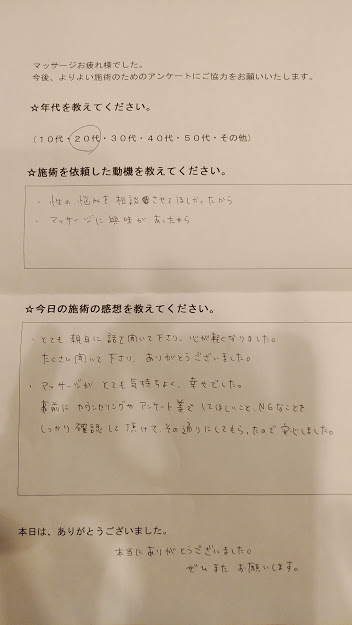 マッサージお疲れ様でした。
今後、よりよい施術のためのアンケートにご協力をお願いいたします。
☆年代を教えてください。
（10代・20代・30代・40代・50代・その他）
☆施術を依頼した動機を教えてください。
・性の悩みを相談させてほしかったから
・マッサージに興味があったから
☆今日の施術の感想を教えてください。
・とても親身に話を聞いて下さり、心が軽くなりました。
たくさん聞いて下さり、ありがとうございました。
・マッサージがとても気持ちよく、幸せでした。
事前にカウンセリングやアンケート等でしてほしいこと、NGなことを
しっかり確認して頂けて、その通りにしてもらったので安心しました。
本日は、ありがとうございました。
本当にありがとうございました。
ぜひまたお願いします。